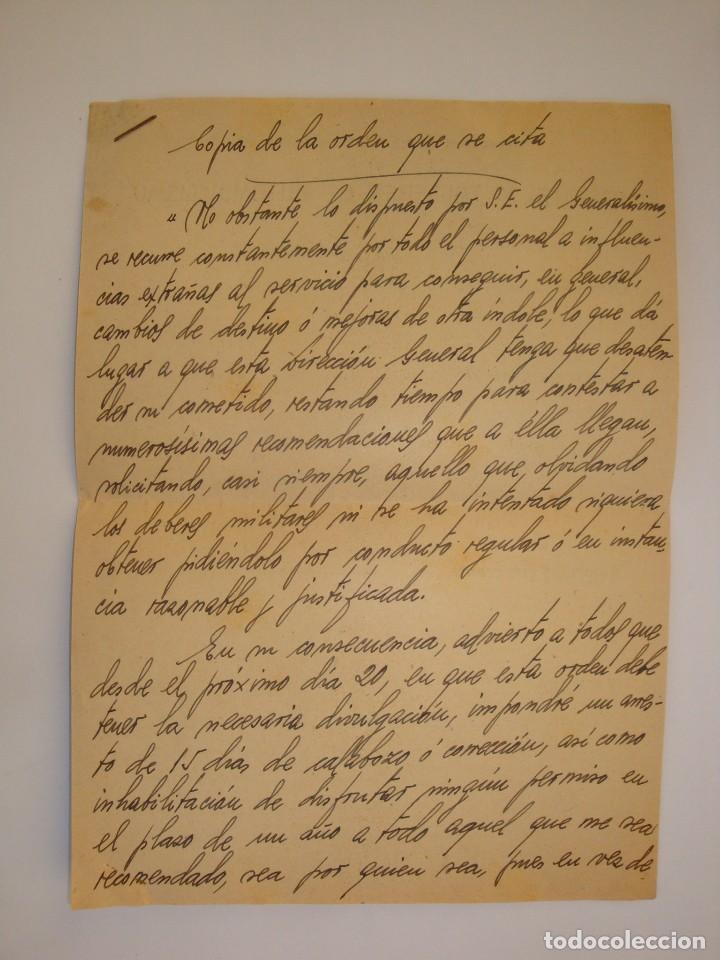 Copia de la orden que se cita
"No obstante lo dispuesto por S.E. el Generalísimo,
se recurre constantemente por todo el personal a influen-
cias extrañas al servicio para conseguir, en general,
cambios de destino ó mejoras de otra índole, lo que dá
lugar a que esta Dirección General tenga que desaten-
der su cometido, restando tiempo para contestar a
numerosísimas recomendaciones que a élla llegan,
solicitando, casi siempre, aquello que, olvidando
los deberes militares ni se ha intentado siquiera
obtener pidiéndolo por conducto regular ó en instan-
cia razonable y justificada.
En su consecuencia, advierto a todos que
desde el próximo día 20, en que esta orden debe
tener la necesaria divulgación, impondré un arres-
to de 15 días de calabozo ó corrección, así como
inhabilitación de disfrutar ningún permiso en
el plazo de un año a todo aquel que me sea
recomendado, sea por quien sea, pues en vez de
todocoleccion.net